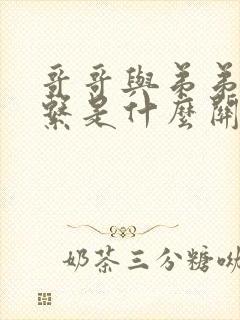 哥哥與弟弟
繫是什麼關
奶茶三分糖呦